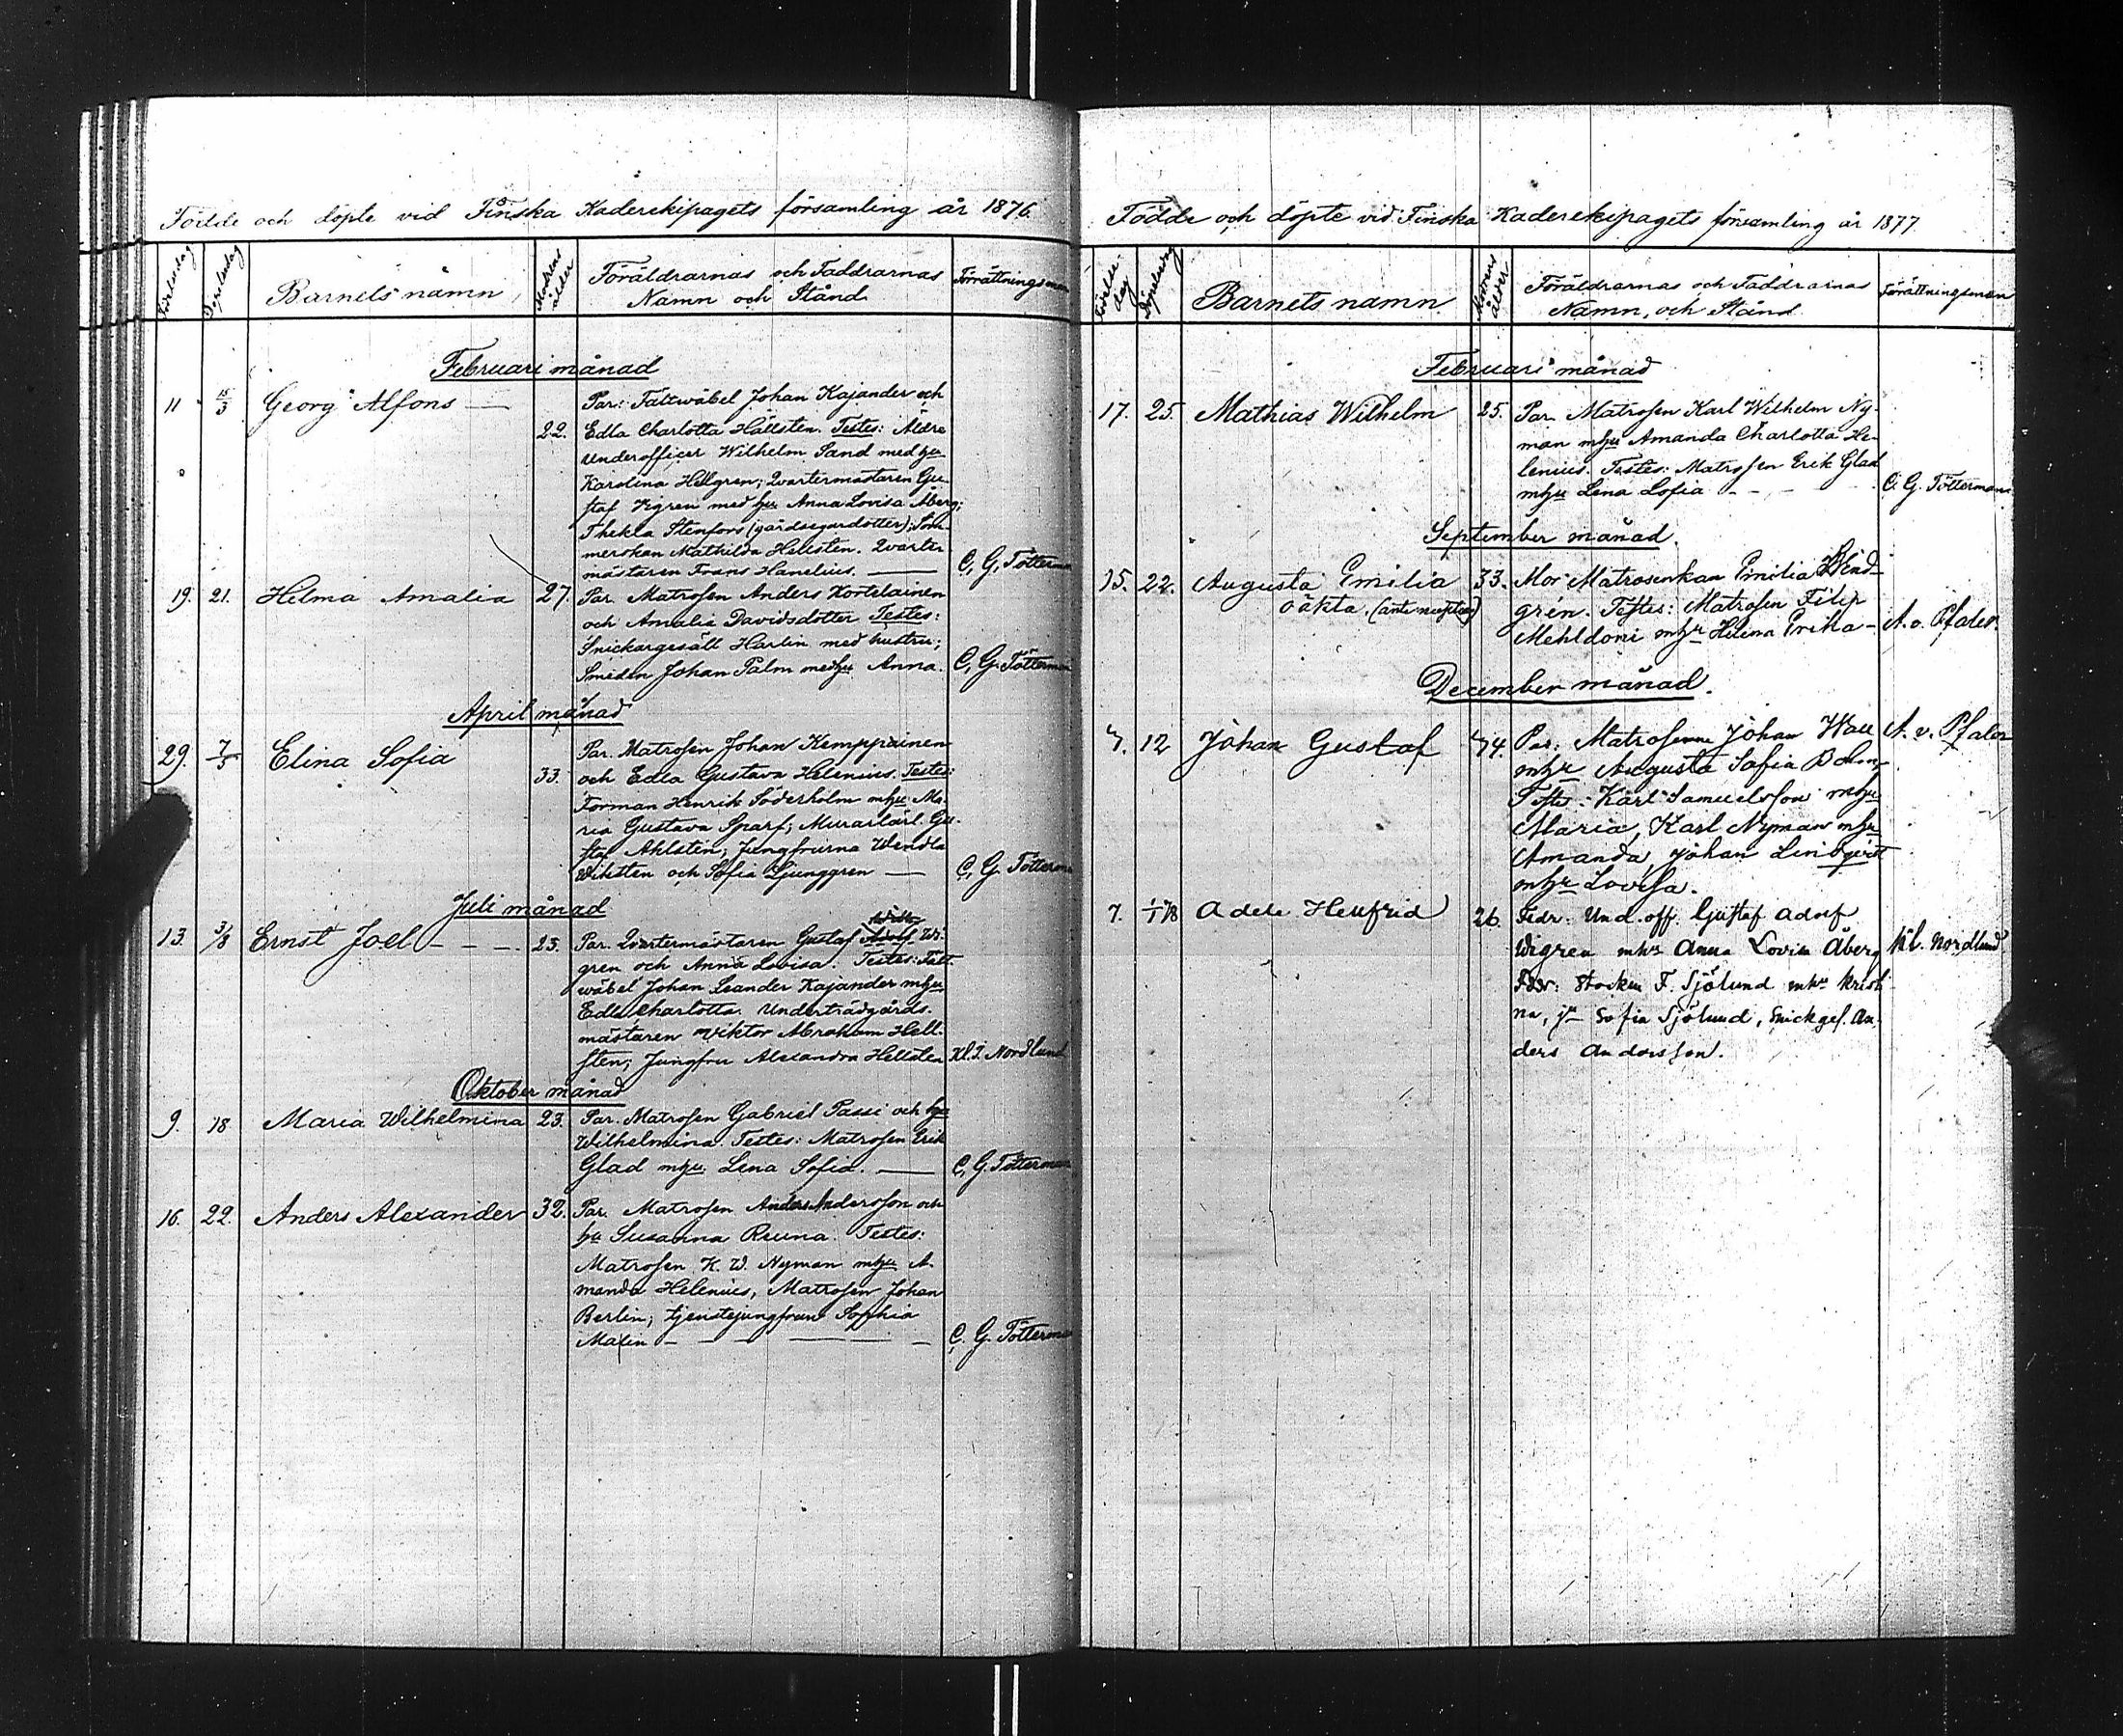 Födde och döpte vid Finska Kaderekipagets församling år 1876.
Födelsedag Döpelsedag Barnets namn Modrens ålder Föräldrarnas och Faddrarnas Namn och Stånd Förrättningsman
Februari månad
11 15/3 Georg Alfons — Par: Fältwäbel Johan Kajander och
22. Edla Charlotta Hällsten. Testes: Äldre
Underofficer Wilhelm Sand med hu
Karolina Helgren; Qvartermästaren Gu-
staf Vigren med hu Anna Lovisa Åberg;
Thekla Stenfors (gårdsegardotter); Som-
merskan Mathilda Hellsten. Qvarter
mästaren Frans Hanelius. — C. G. Totterman
19. 21. Helma Amalia 27. Par. Matrosen Anders Kortelainen
och Amalia Davidsdotter Testes:
Snickargesäll Harlin med hustru;
Smeden Johan Palm med hu Anna. C. G. Tötterman
April månad
29. 7/5 Elina Sofia Par. Matrosen Johan Kemppainen
33. och Edla Gustava Helenius. Testes:
Forman Henrik Söderholm m hu Ma-
ria Gustava Sparf; Murarlärl. Gu-
staf Ahlsten; Jungfrurna Wendla
Wiksten och Sofia Ljunggren — C. G. Totterman
Juli månad
13. 3/8 Ernst Joel - - - 25. Par. Qvartermästaren Gustaf Adolf Wi-
gren och Anna Lovisa. Testes: Fält-
wäbel Johan Leander Kajander m hu
Edla Charlotta. Underträdgårds-
mästaren Wiktor Abraham Hell-
sten; Jungfru Alexandra Hellsten Kl. J. Nordlund
Oktober månad
9. 18. Maria Wilhelmina 23. Par. Matrosen Gabriel Passi och hu
Wilhelmina. Testes: Matrosen Erik
Glad m hu Lena Sofia. — C. G. Totterman
16. 22. Anders Alexander 32. Par. Matrosen Anders Andersson och
hu Susanna Reuna. Testes:
Matrosen K. W. Nyman m hu A-
manda Helenius, Matrosen Johan
Berlin; tjenstejungfrun Sophia
Malin — C. G. Tötterman
Födde och döpte vid Finska Kaderekipagets församling år 1877.
Födelsedag Döpelsedag Barnets namn. Modrens ålder Föräldrarnas och Faddrarnas Namn, och Stånd Förrättningsman
Februari månad
17. 25. Mathias Wilhelm 25. Par. Matrosen Karl Wilhelm Ny-
man m hu Amanda Charlotta He-
lenius. Testes: Matrosen Erik Glad
m hu Lena Sofia - - - C. G. Tötterman
September månad.
15. 22. Augusta Emilia 33. Mor Matrosenkan Emilia Lind-
oäkta. (ante nuptias) grén. Testes: Matrosen Filip
Mehldoni m hu Helena Erika - A. v. Pfaler.
December månad.
7. 12 Johan Gustaf 74. Par: Matrosen Johan Wall A. v. Pfaler
m hu Augusta Sofia Bohm,
Testes: Karl Samuelsson m hu
Maria, Karl Nyman m hu
Amanda, Johan Lindqvist
m hu Lovisa.
7. 1/1 78 Adele Helfrid 26. Fädr: Und. off. Gustaf Adolf
Wigren m hu Anna Lovisa Åberg Kl. Nordlund
Fddr: Stocken F. Sjölund m hu Kristi-
na, jfn Sofia Sjölund, Snickges. An-
ders Andersson.